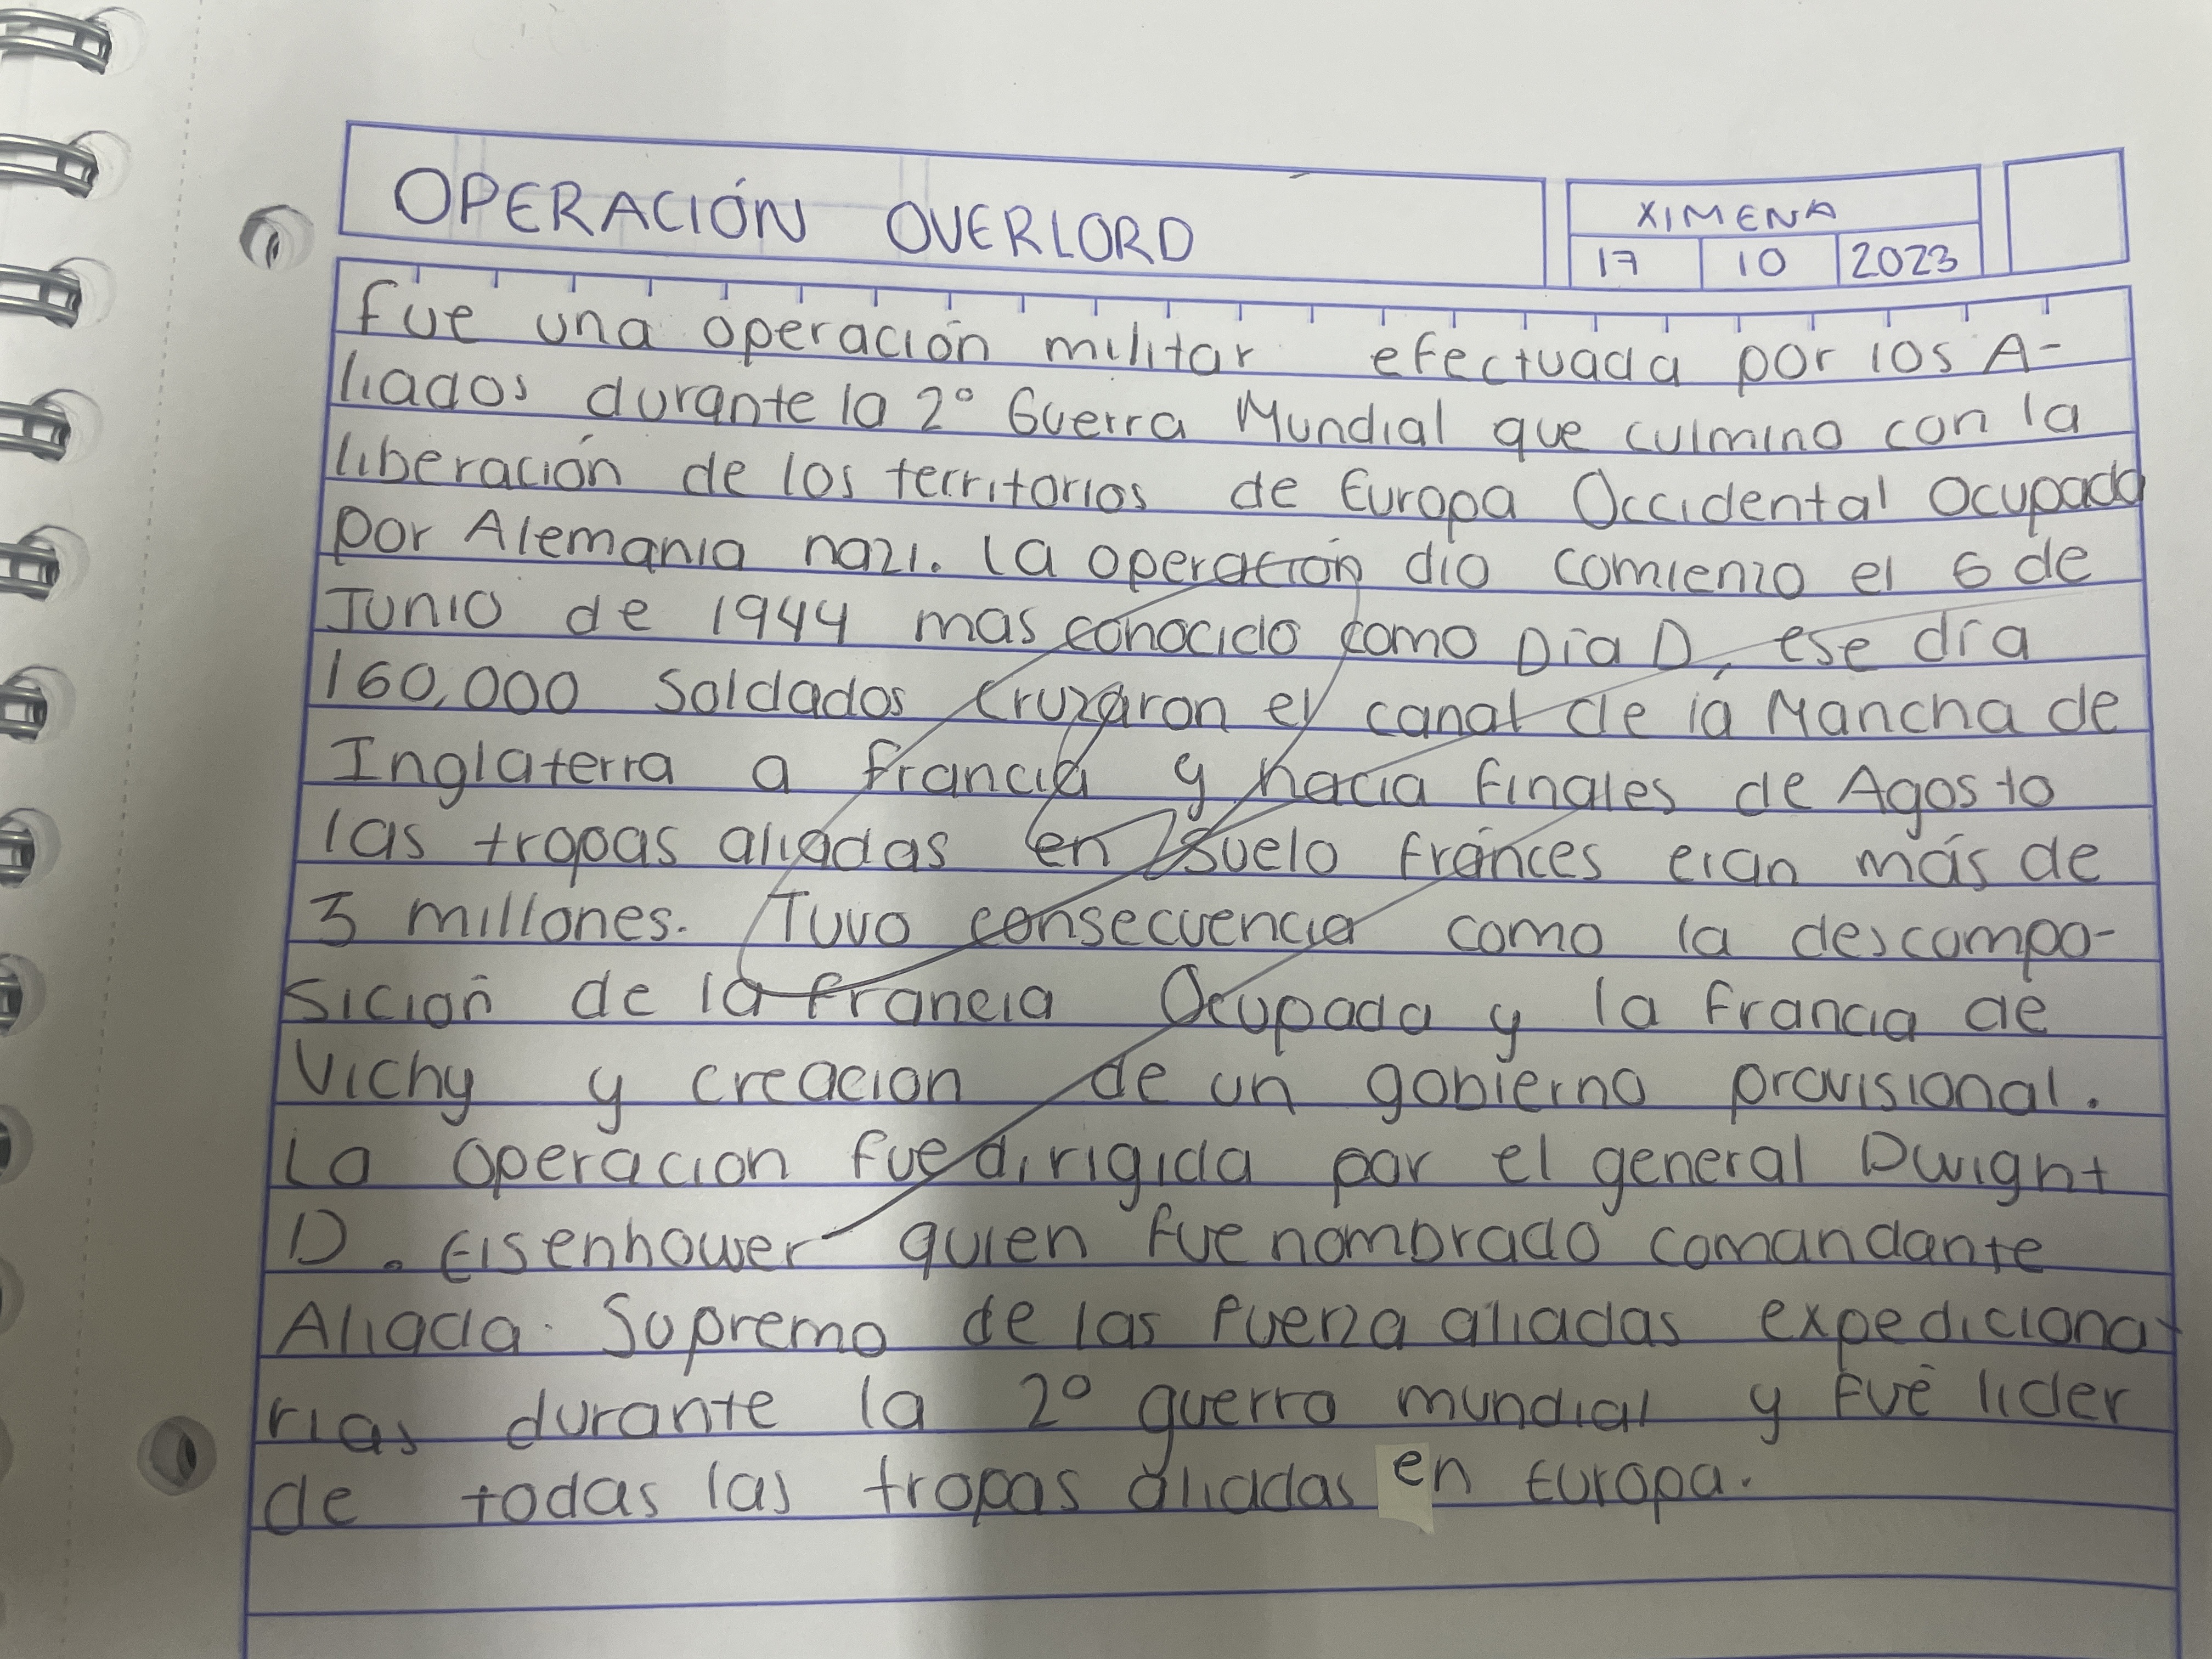 OPERACIÓN OVERLORD
XIMENA
17 10 2023
Fue una operación militar efectuada por los A-
liados durante la 2° Guerra Mundial que culmino con la
liberación de los territorios de Europa Occidental Ocupado
por Alemania nazi. La operación dio comienzo el 6 de
Junio de 1944 mas conocido como Día D, ese día
160,000 Soldados cruzaron el canal de la Mancha de
Inglaterra a Francia y hacia finales de Agosto
las tropas aliadas en suelo fránces eran más de
3 millones. Tuvo consecuencia como la descompo-
sición de la Francia Ocupada y la Francia de
Vichy y creacion de un gobierno provisional.
La operacion fue dirigida por el general Dwight
D. Eisenhower quien fue nombrado comandante
Aliada. Supremo de las fuerza aliadas expediciona-
rias durante la 2° guerra mundial y fué lider
de todas las tropas aliadas en Europa.